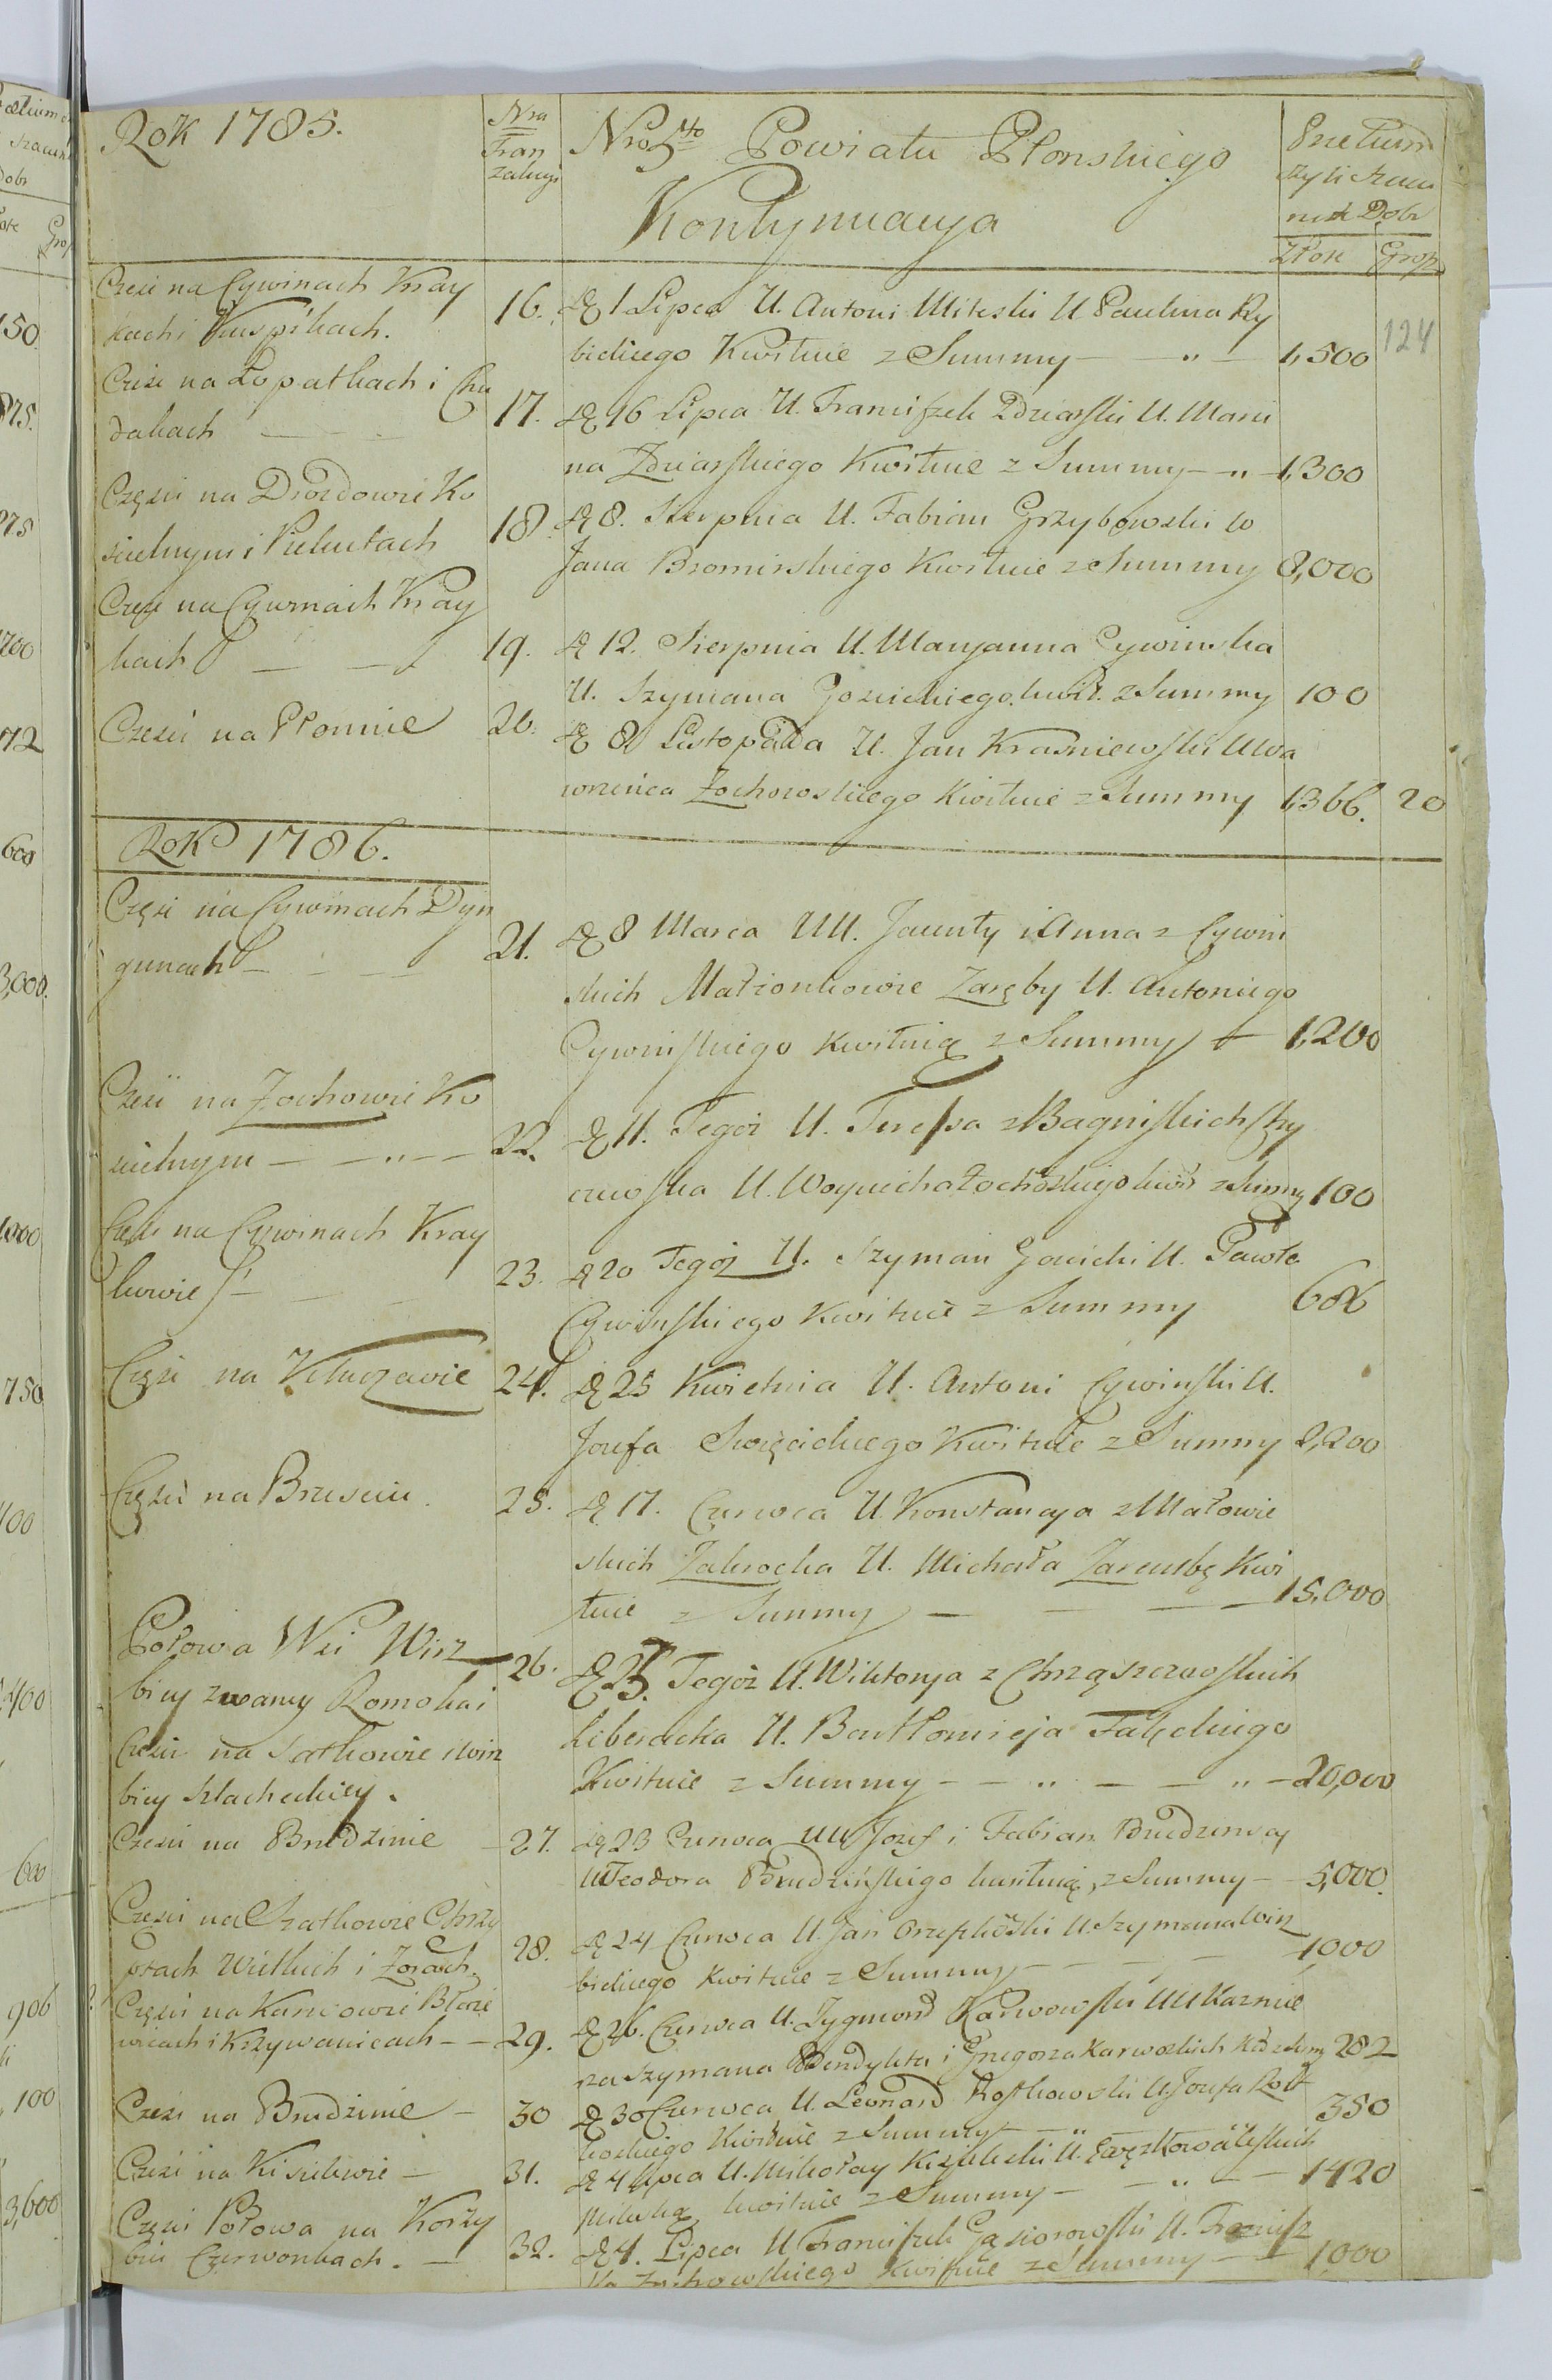 Rok 1785.
Nra
Tran
zakcyi
Nro 5to Powiatu Płonskiego
Kontynuacya
Pretium
czyli Szacu
nek Dobr
Złote Grosz
124
Części na Cywinach Kray
kach i
16. D 1 Lipca U. Antoni Miłeski U Paulina Ry
bickiego Kwituie z Summy — „ — 1,500
Części na Łopatkach i Chu
dakach
17. D 16 Lipca U. Franciszek Zdziarski U. Marci
na Zdziarskiego Kwituie z Summy — „ — 1,300
Części na Drozdowie Ko
scielnym i Pielutach
18 D 8. Sierpnia U. Fabian Grzybowski
Jana Bromirskiego Kwituie z Summy 8,000
Częsc na Cywinach Kray
kach
19. D 12. Sierpnia U. Maryanna Cywinska
U. Szymana Goscickiego kwit. z Summy 100
Części na Płonnie
20. D 8 Listopada U. Jan Krasniewski U Wa
wrzeńca Żochowskiego Kwituie z Summy 1,366. 20
Rok 1786.
Części na Cywinach Dyn
gunach
21. D 8 Marca UU. Jacenty i Anna z Cywin
skich Małżonkowie Zaręby U. Antoniego
Cywinskiego Kwituią z Summy 1,200
Części na Żochowie Ko
scielnym — — „ —
22. D 11. Tegoż U. Teressa z Bagniskich
U. Woyciecha Żochowskiego kwit z Summy 100
Części na Cywinach Kray
kowie
23. D 20 Tegoż U. Szyman Goscicki U. Pawła
Cywinskiego Kwituie z Summy
Części na Kluczewie
24. D 25 Kwietnia U. Antoni Cywinski U.
Jozefa Swięcickiego Kwituie z Summy 2,200
Części na Brzesciu
25. D 17. Czerwca U. Konstancya z Małowie
skich Zakrocka U. Michała Zarembę Kwi
tuie z Summy — — — 15,000
Połowa Wsi Wirz
bicy zwaney Romoka i
Części na Satkowie i Wirz
bicy Szlacheckiey.
26. D 23. Tegoż U. Wiktorya z Chrząszczewskich
Liberacka U. Bartłomieja Fałęckiego
Kwituie z Summy — — „ — — „ — 20,000
Części na Brudzinie
27. D 23 Czerwca UU Jozef i Fabian Brudzinscy
U Teodora Brudzińskiego kwituią z Summy — 5,000.
Części na Szatkowie Chrzy
ptach Wielkich i Żorach.
28. D 24 Czerwca U. Jan U. Szymana Wirz
bickiego Kwituie z Summy — — — 1000
Części na Karwowie
i Krzywanicach — —
29. D 26. Czerwca U. Zygmond Karwowski UU Kazmie
rza Szymana Benedykta i Grzegorza Karwoskich 282
Części na Brudzinie —
30 D 30 Czerwca U. Leonard Rostkowski U. Jozefa Rost
koskiego Kwituie z Summy — „ 350
Części na Kisielewie —
31. D 4 Lipca U. Mikołay Kisielecki U.
kwituie z Summy — — „ — — 1420
Części Połowa na Korzy
biu Czerwonkach. —
32. D 4. Lipca U Franciszek Gąsiorowski U. Francisz
ka Żochowskiego Kwituie z Summy — — 1,000